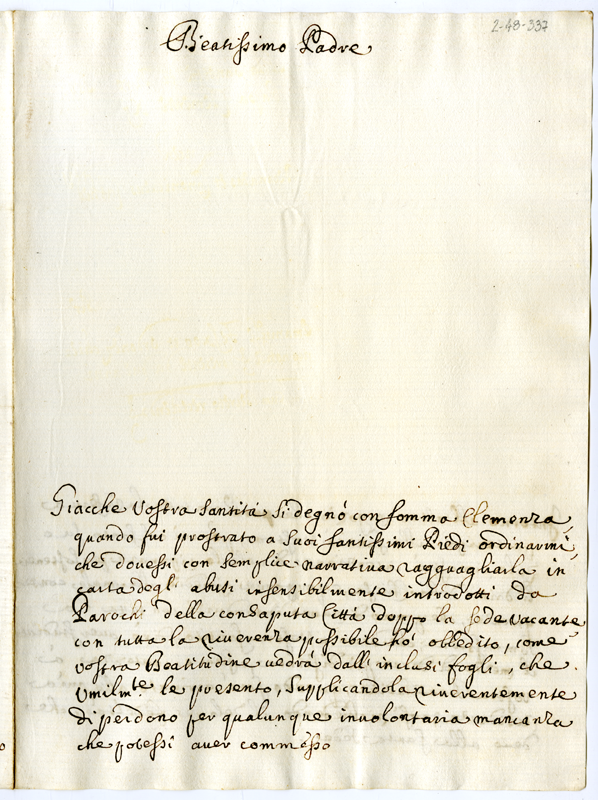 2-48-337
Beatissimo Padre
Giacche Vostra Santità si degnó con somma Clemenza,
quando fui prostrato a suoi santissimi Piedi ordinarmi,
che dovessi con semplice narrativa ragguagliarla in
carta degl' abusi insensibilmente introdotti da
Parochi della consaputa Città doppo la sede vacante
con tutta la riverenza possibile hó obbedito, come
Vostra Beatitudine vedrá dall' inclusi fogli, che
Umilmte le presento, supplicandola riverentemente
di perdono per qualunque involontaria mancanza
che potessi aver commesso